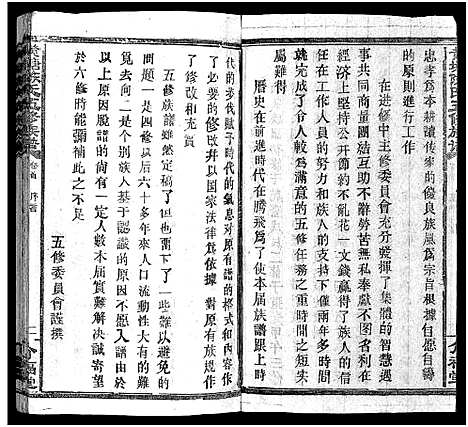 忠孝為本耕讀傳家的優良族風為宗旨根据自愿自籌
的原則進行工作
在進修中主修委員會充分發揮了集體的智慧凡
事共同商量團結互助不辭勞苦無私奉獻不图省利在
經济上堅持公开節約不亂花一文錢贏得了族人的信
任在工作人員的努力和族人的支持下在很短的時間
內完成了令人較為滿意的五修任務之重時間之短实
屬難得
歷史的時代在前進在騰飛為了使本届族譜跟上時
代的步伐賦予時代的氣息对原有譜的格式和內容作
了必要的修改并以国家法律為依據對原有族規作
些修改和创
五修族譜雖然定稿了但也留下了一些难以避免的
問題一是四修以后六十多年來人口流動性大有的難
覓去向二是个別族人基于認識的原因不愿入譜由於
以上原因脫誤的尚有一定人數本届實難解决誠寄望
於六修時能彌補此之不足
五修委員會謹撰
卷首
序言